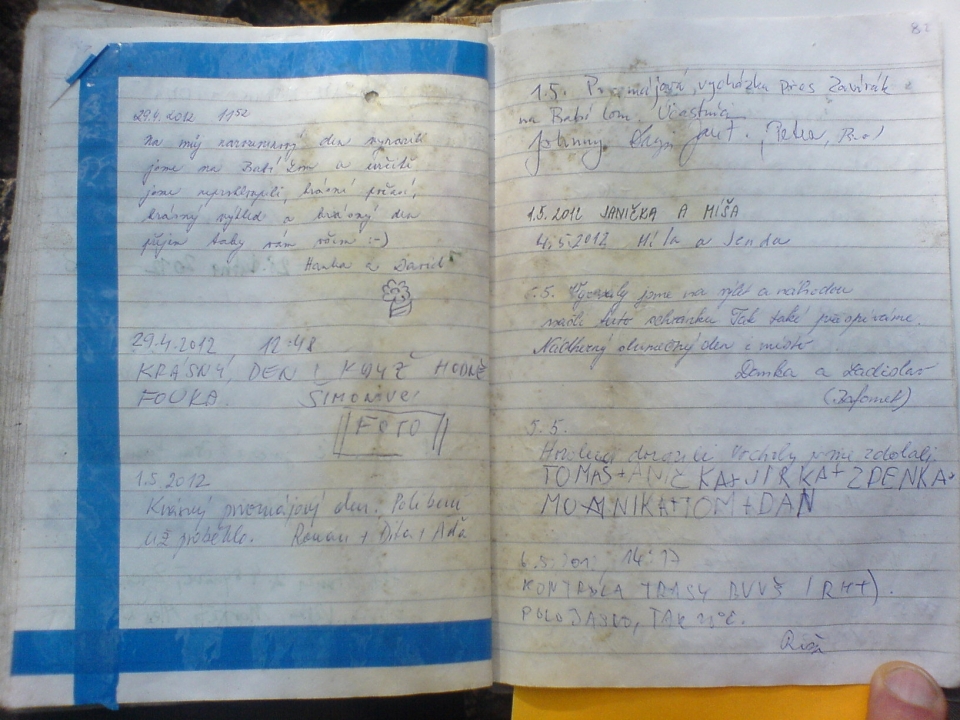 29.4.2012 11⁵²
na můj narozeninový den vyrazili
jsme na Babí Lom a určitě
jsme neprohloupili, krásné počasí,
krásný výhled a krásný den
přejem taky vám všem :-)
Hanka a David
29.4.2012 12:48
KRÁSNÝ DEN I KDYŽ HODNĚ
FOUKA. ŠIMONOVCI
FOTO
1.5.2012
Krásný prvomájový den. Políbení
už proběhlo. Roman + Dita + Ada
82
1.5. Prvomájová vycházka přes Zavírák
na Babí lom. Účastníci
Johnny, Petra,
1.5.2012 JANIČKA A MÍŠA
4.5.2012 Míla a Jenda
5. jsme na výlet a náhodou
našli tuto schránku Tak také přispíváme.
Nádherný slunečný den i místo
Denka a Ladislav
5.5.
dorazili Vrcholy jsme zdolali
TOMÁŠ + ANIČKA + JIRKA + ZDENKA +
MONIKA + TOM + DAN
6.5. 14:17
KONTROLA TRASY
POLOJASNO, TAK